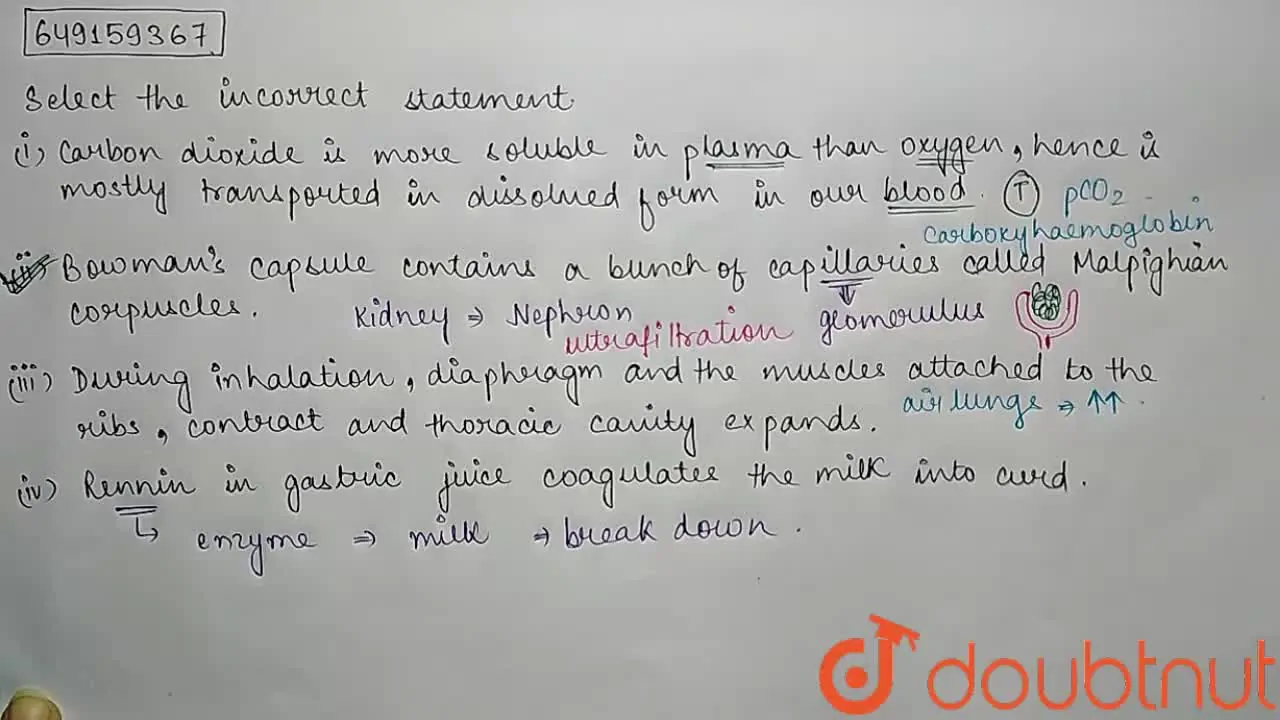 649159367
Select the incorrect statement.
(i) Carbon dioxide is more soluble in plasma than oxygen, hence is
mostly transported in dissolved form in our blood. T pCO2
carboxyhaemoglobin
(ii) Bowman's capsule contains a bunch of capillaries called Malpighian
corpuscles.
Kidney ⇒ Nephron
ultrafiltration glomerulus
(iii) During inhalation, diaphragm and the muscles attached to the
ribs, contract and thoracic cavity expands.
air lungs ⇒ ↑↑.
(iv) Rennin in gastric juice coagulates the milk into curd.
↳ enzyme ⇒ milk ⇒ break down.
doubtnut